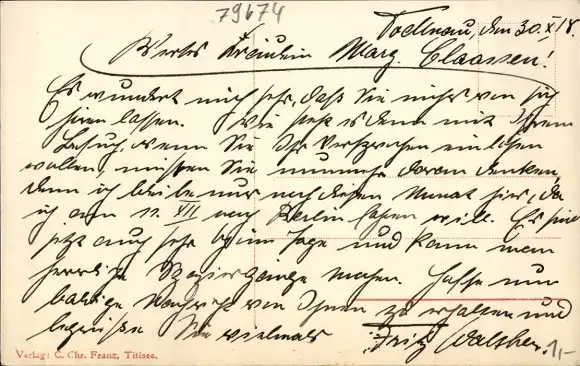 79674
Todtnau, den 30.X.18.
Wertes Fräulein Marg. Claassen!
Es wundert mich sehr, daß Sie nichts von sich
hören lassen. Wie steht es denn mit Ihrem
Besuch, wenn Sie Ihr Versprechen einlösen
wollen, müßten Sie nunmehr daran denken,
denn ich bleibe nur noch diesen Monat hier, da
ich am 11. XII nach Berlin fahren will. Es sind
jetzt auch sehr schöne Tage und kann man
herrliche Spaziergänge machen. Hoffe nun
baldige Nachricht von Ihnen zu erhalten und
begrüße Sie vielmals Fritz Walther.
1,-
Verlag: C. Chr. Franz, Titisee.